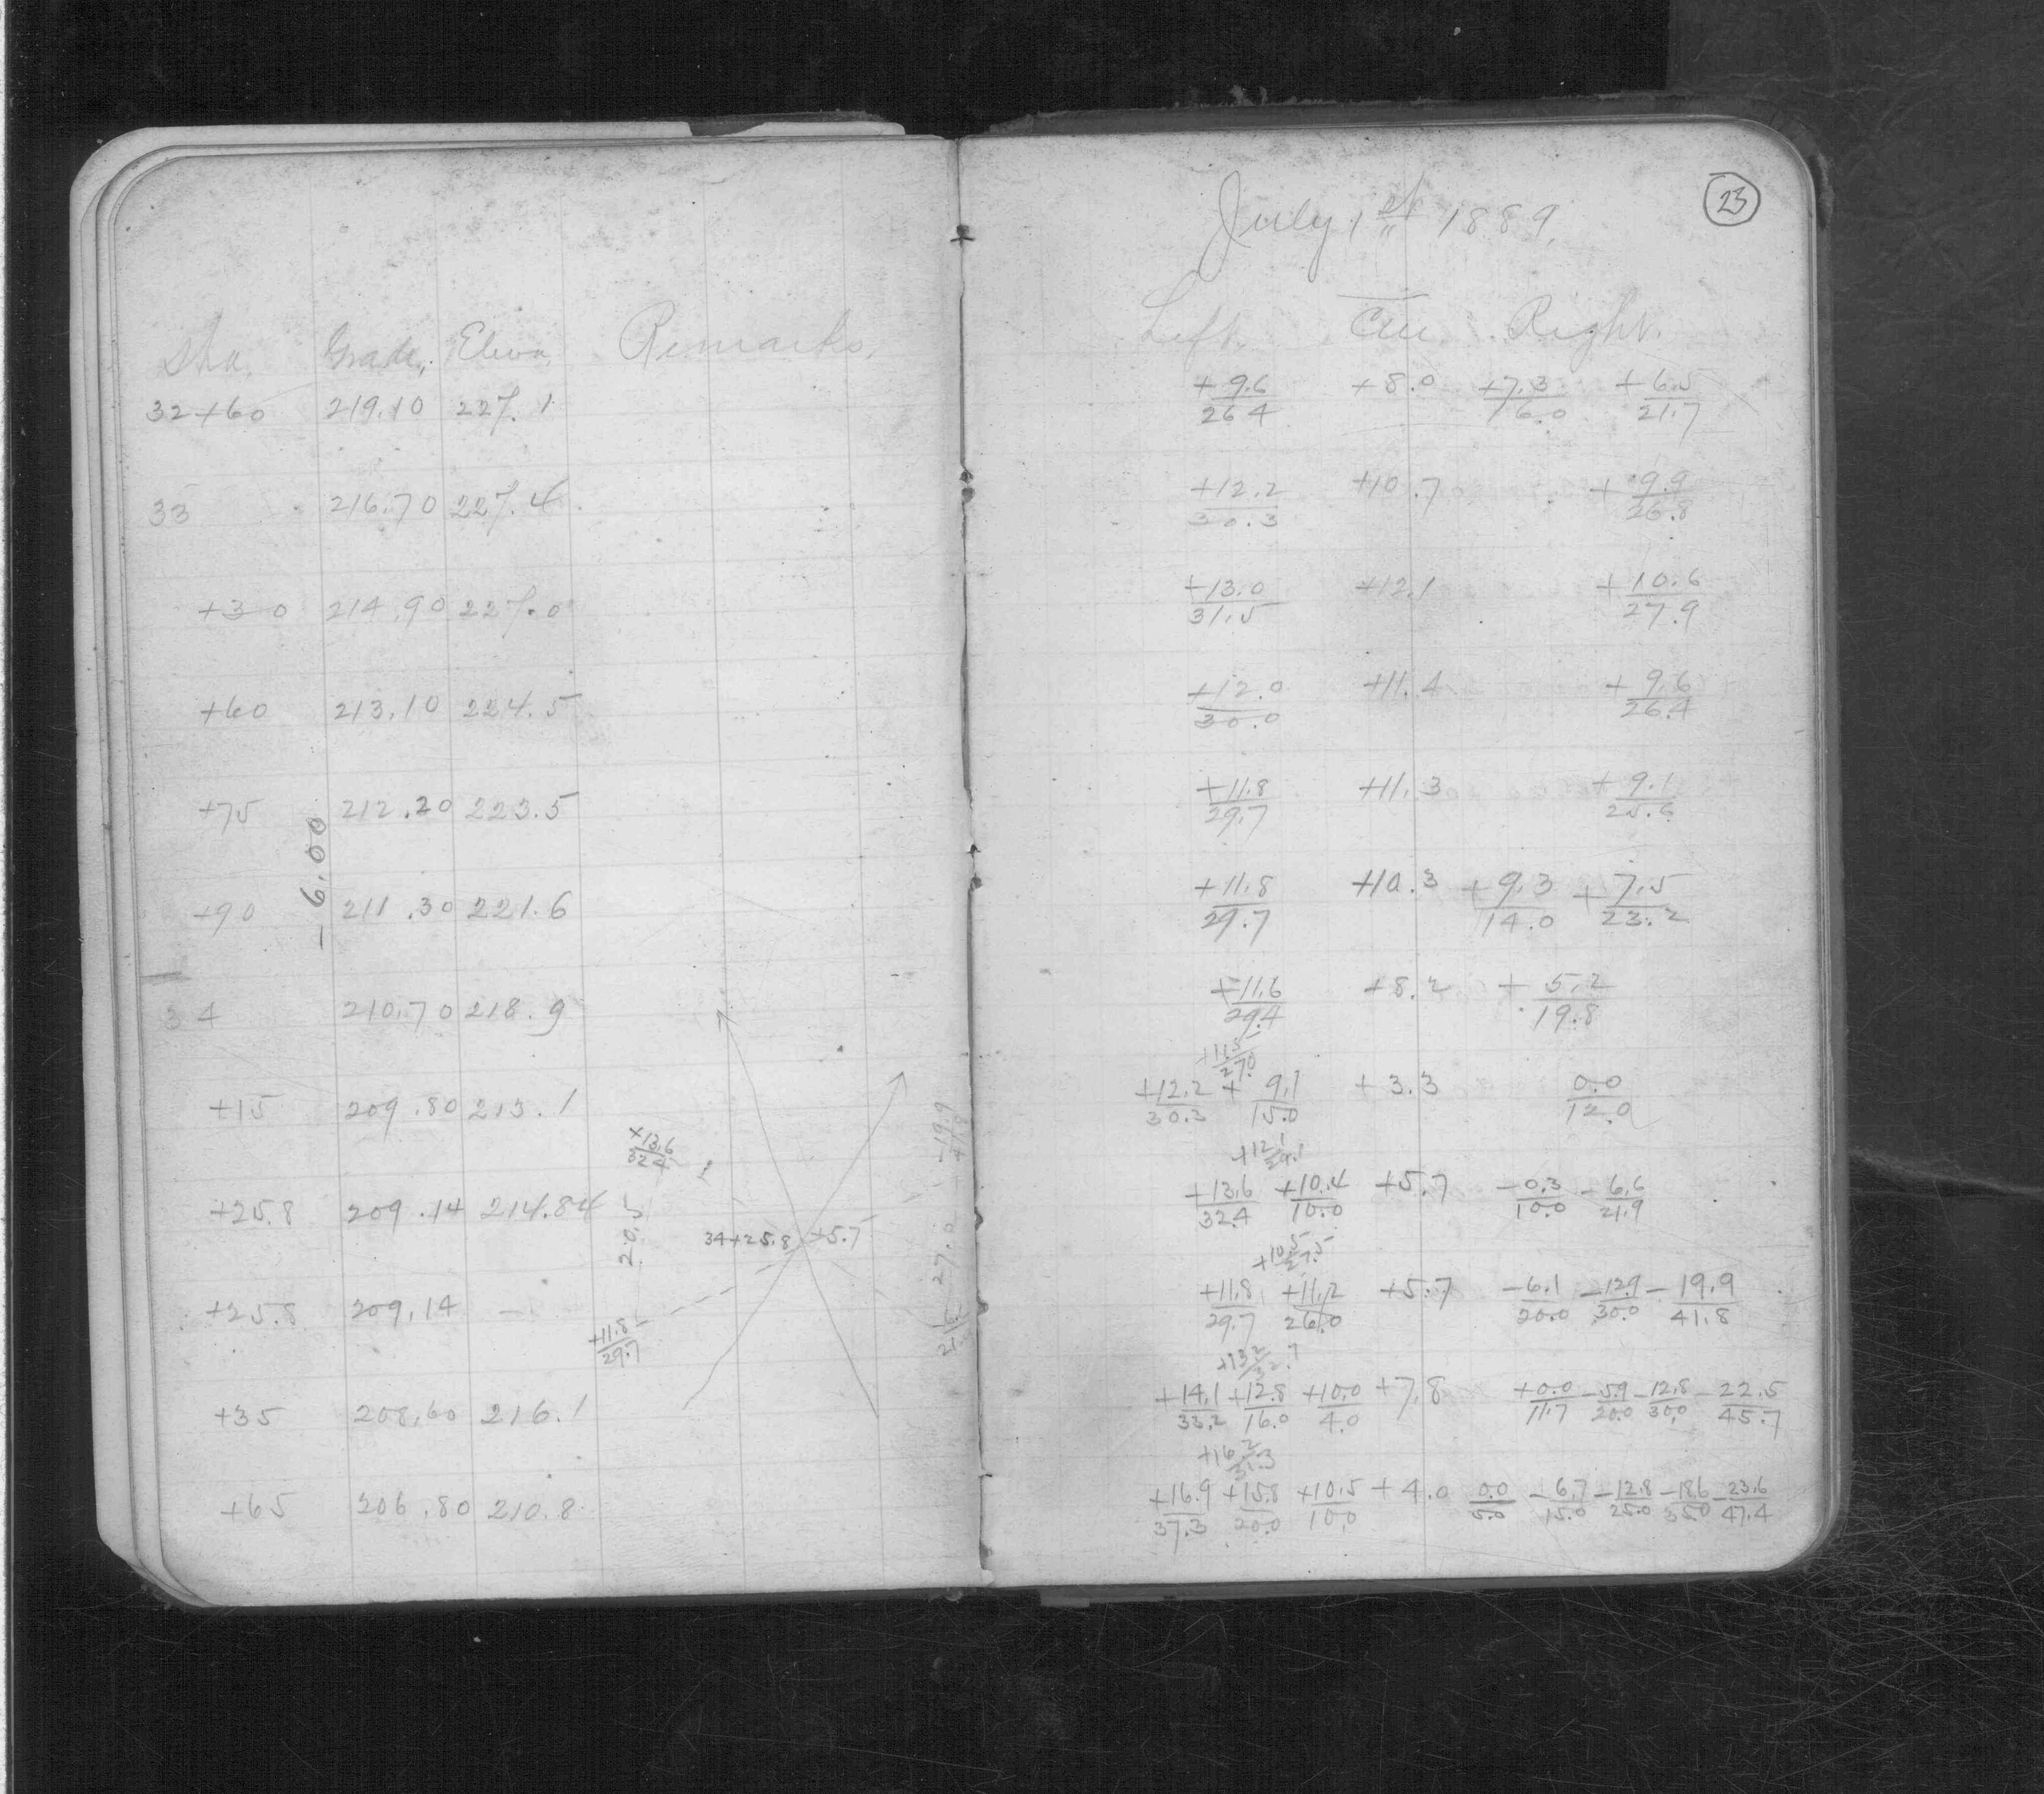 Sta. Grade, Eleva. Remarks.
32+60 219.10 227.1
33 216.70 227.4
+30 214.90 227.0
+60 213.10 224.5
+75 212.20 223.5
-6.00
+90 211.30 221.6
34 210.70 218.9
+15 209.80 213.1
+13.6
32.4
+25.8 209.14 214.84
20.5
34+25.8 +5.7
-19.9
41.8
27.0
+25.8 209.14 —
+11.8
29.7
+35 208.60 216.1
+65 206.80 210.8
23
July 1st 1889.
Left. Right.
+9.6 +8.0 +7.3 +6.5
26.4 16.0 21.7
+12.2 +10.7 +9.9
30.3 26.8
+13.0 +12.1 +10.6
31.5 27.9
+12.0 +11.4 +9.6
30.0 26.4
+11.8 +11.3 +9.1
29.7 25.6
+11.8 +10.3 +9.3 +7.5
29.7 14.0 23.2
+11.6 +8.2 +5.2
29.4 19.8
+11.5
27.0
+12.2 +9.1 +3.3 0.0
30.3 15.0 12.0
+12.1
29.1
+13.6 +10.4 +5.7 -0.3 -6.6
32.4 10.0 10.0 21.9
+10.5
27.5
+11.8 +11.2 +5.7 -6.1 -12.9 -19.9
29.7 26.0 20.0 30.0 41.8
+13.2
+14.1 +12.8 +10.0 +7.8 +0.0 -5.9 -12.8 -22.5
33.2 16.0 4.0 11.7 20.0 30.0 45.7
+16.2
+16.9 +15.8 +10.5 +4.0 0.0 -6.7 -12.8 -18.6 -23.6
37.3 20.0 10.0 5.0 15.0 25.0 35.0 47.4